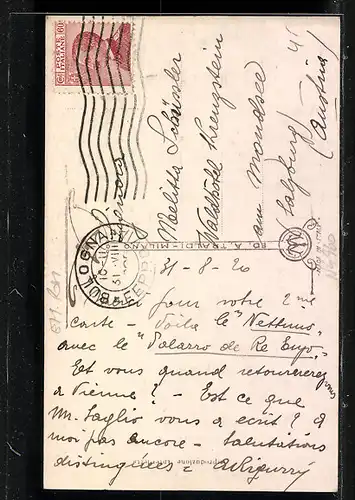 POSTE ITALIANE
Signora
Melitta Schüssler
Waldhotel Krengstein
am Mondsee
Salzburg
(Austria)
ED. A. TRALDI - MILANO
BOLOGNA
31·VIII
31-8-20
pour votre 2me
carte - Voilà le "Nettuno"
avec le "Palazzo de Re Enzo".
Et vous quand retournerez vous
a Vienne? - Est ce que
Mr. Saglio vous a écrit? à
moi pas encore - Salutations
distinguées -